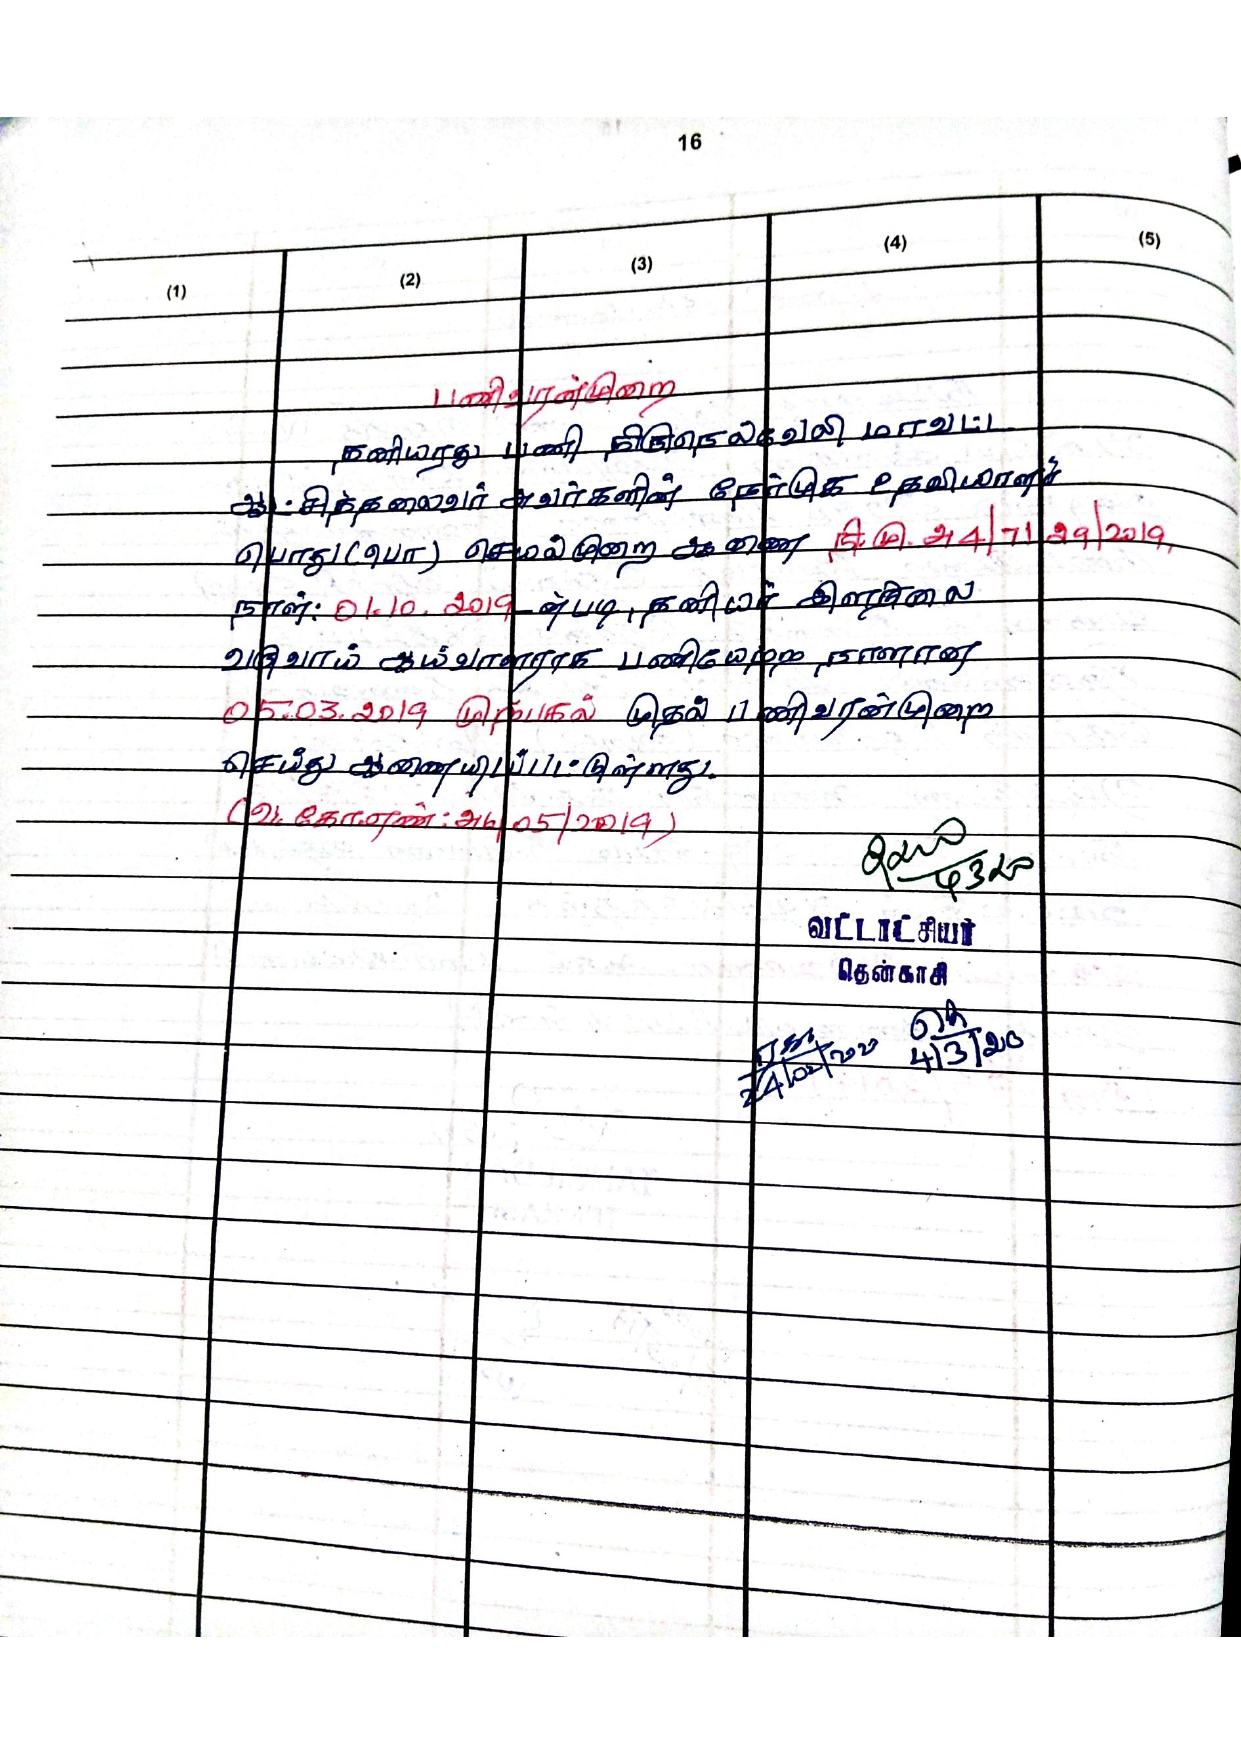 16
(1) (2) (3) (4) (5)
பணிவரன்முறை
தனியரது பணி திருநெல்வேலி மாவட்ட
ஆட்சித்தலைவர் அவர்களின் நேர்முக உதவியாளர்
பொது(பொ) செயல்முறை ஆணை நி.மு. அ4/7129/2019,
நாள்: 01.10.2019-ன்படி, தனியர் இளநிலை
வருவாய் ஆய்வாளராக பணியேற்ற நாளான
05.03.2019 முற்பகல் முதல் பணிவரன்முறை
செய்து ஆணையிடப்பட்டுள்ளது.
(வ.கோ.எண்: அ6/05/2019)
வட்டாட்சியர்
தென்காசி
4/3/20
24/02/2020